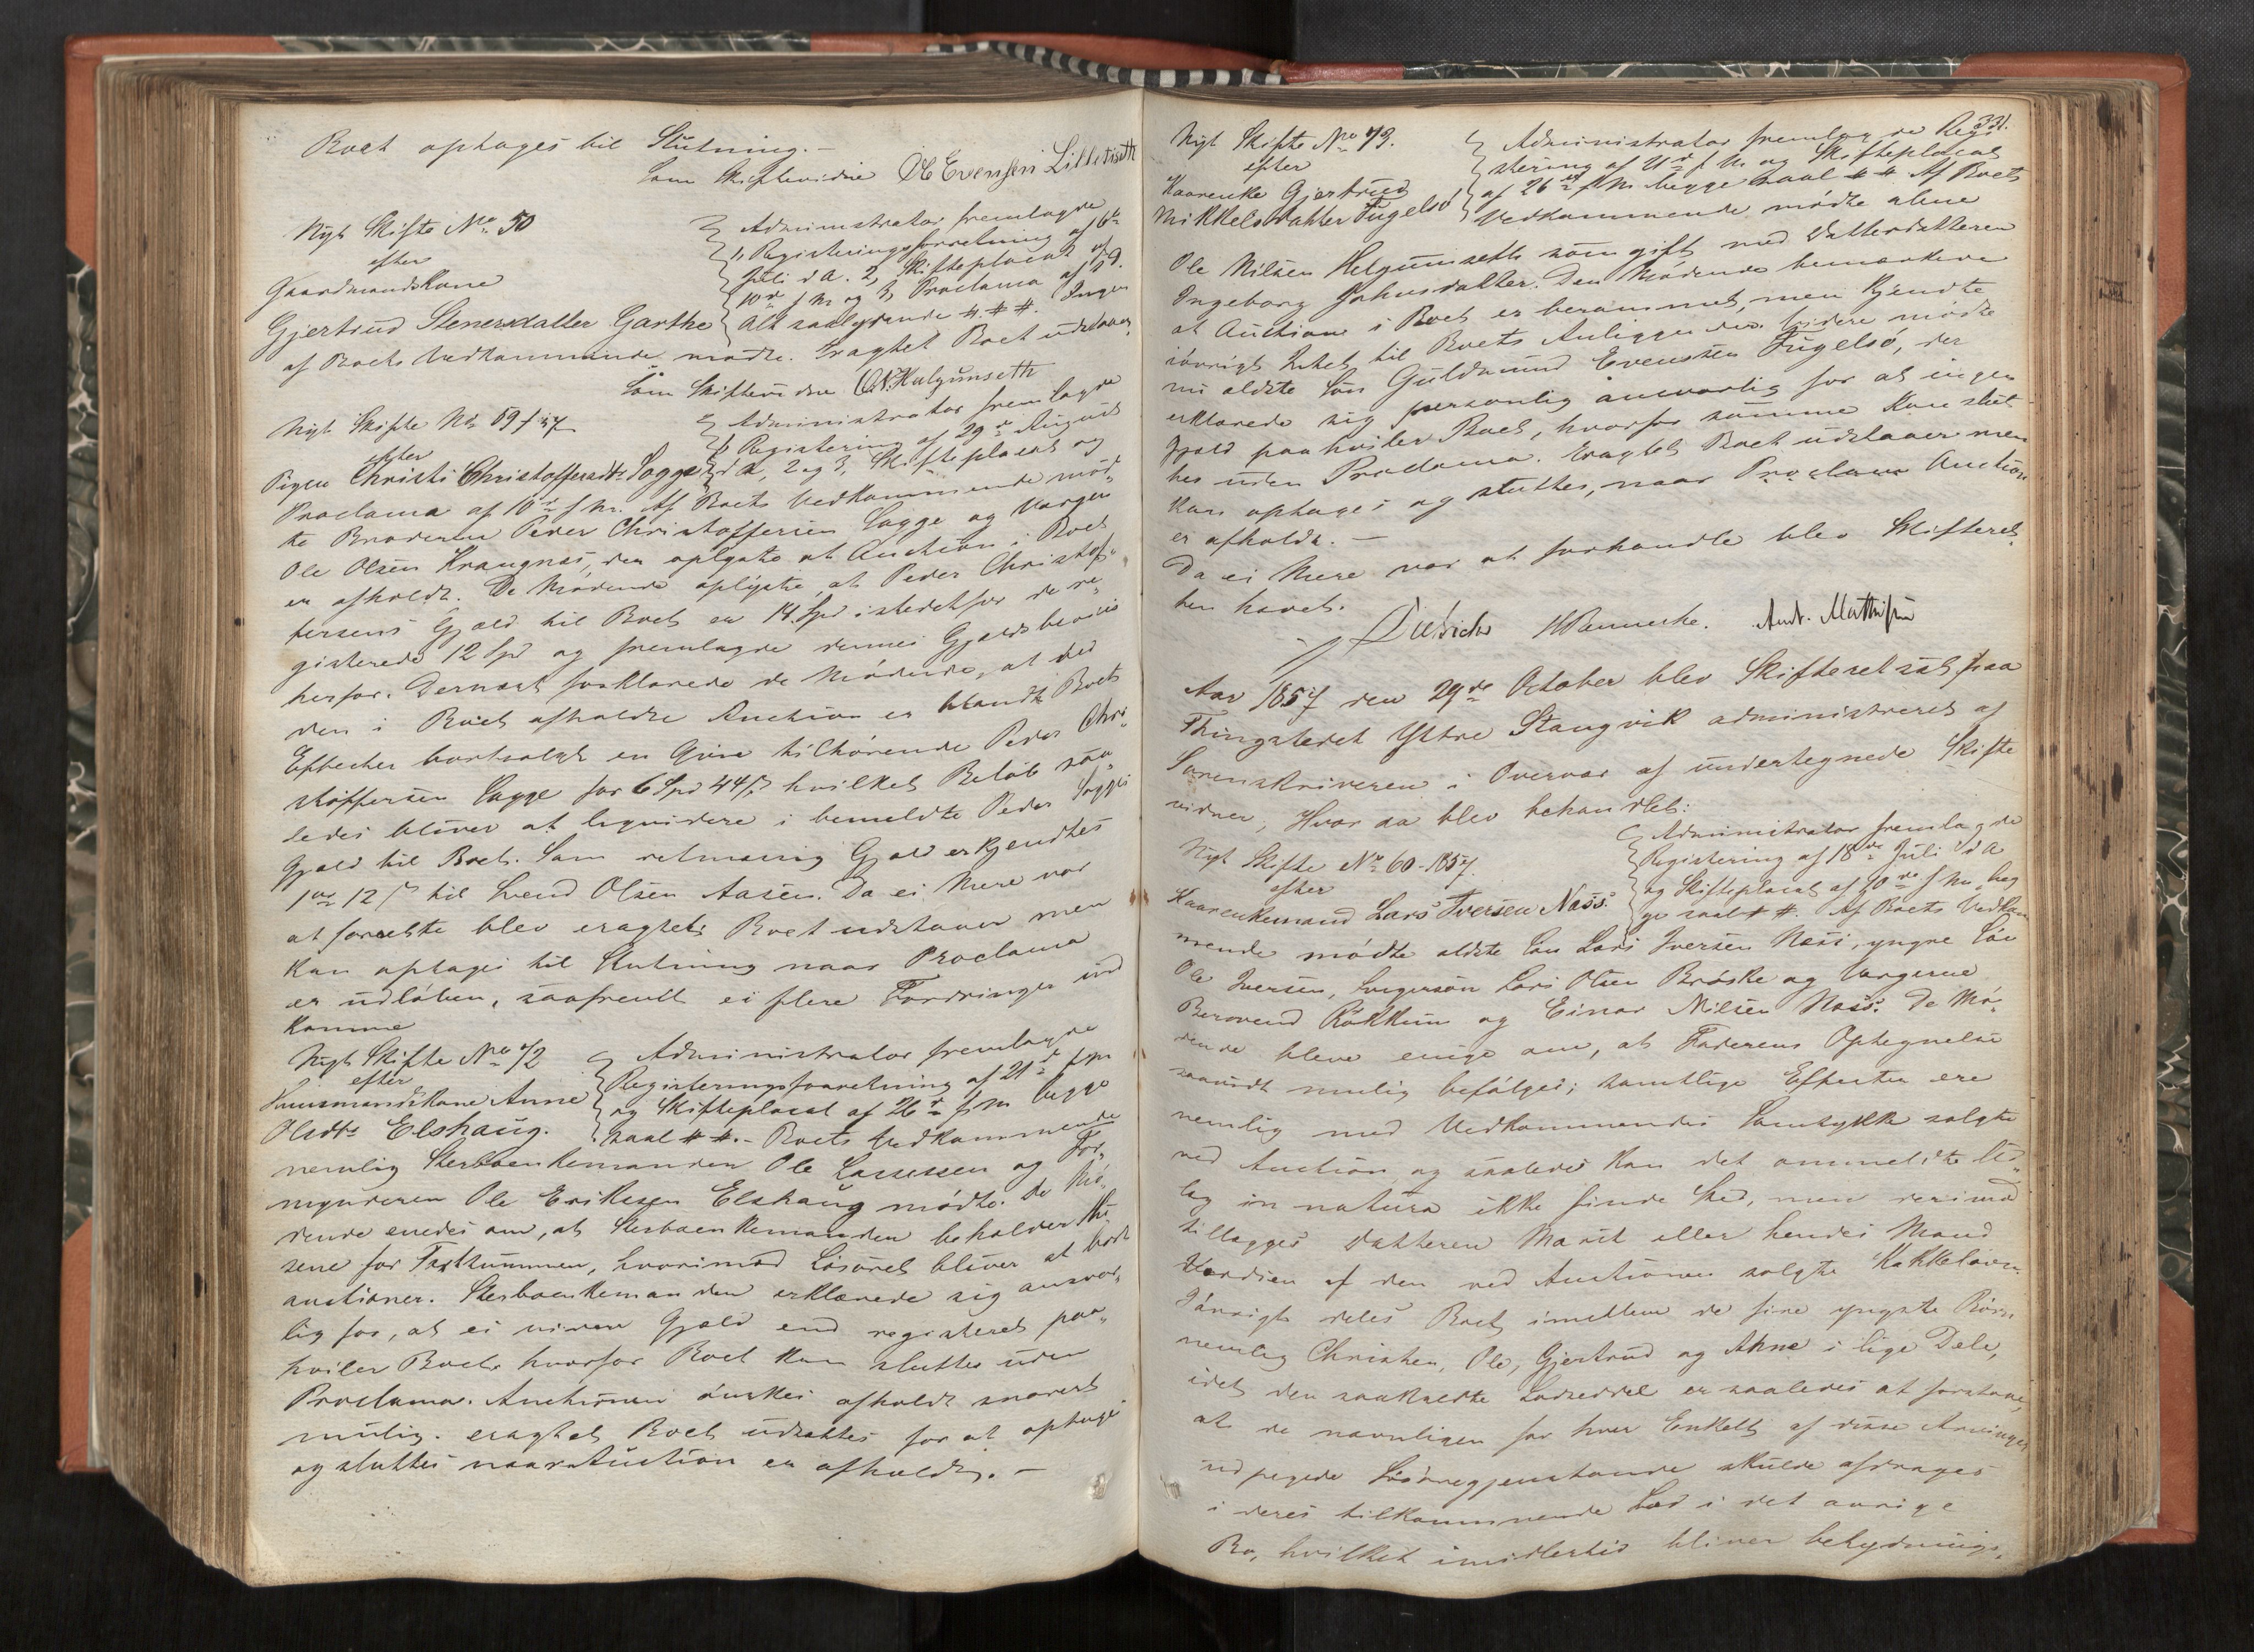 Boet optages til Slutning.-
Som Skiftevidne Ole Evensen Lilletiseth
Nyt Skifte No 50
efter
Gaardmandskone
Gjertrud Stenersdatter Garthe
Administrator fremlagde
1, Registeringsforretning af 6te
Juli d A. 2, Skifteplacat af
10de f M og 3, Proclama af s. D.
Alt saalydende # # #. Ingen
af Boets Vedkommende mødte. Eragtet Boet udstaaer.
Som Skiftevidne O. N. Halgunseth
Nyt Skifte No 69 f 57
efter
Pigen Christi Christoffersdtr Sogge
Administrator fremlagde
1, Registering af 29de August
d A, 2 og 3, Skifteplacat og
Proclama af 10de f M. Af Boets Vedkommende mød„
te Broderen Peder Christoffersen Sogge og Vergen
Ole Olsen Krangnæs, der oplyste at Auction i Boet
er afholdt. De Mødende oplyste, at Peder Christof„
fersens Gjæld til Boet er 14 Spd istedetfor de re„
gisterede 12 Spd og fremlagde dennes Gjeldsbeviis
herfor. Dernæst forklarede de Mødende, at ved
den i Boet afholdte Auction er blandt Boets
Effecter bortsolgt en Qvie tilhørende Peder Chri„
stoffersen Sogge for 6 Spd 44 ß hvilket Beløb saa„
ledes bliver at liqvidere i bemeldte Peder Sogges
Gjæld til Boet. Som retmæssig Gjæld erkjendtes
1 ort 12 ß til Svend Olsen Aasen. Da ei Mere var
at foretate blev eragtet: Boet udstaaer men
kan optages til Slutning naar Proclama
er udløben, saafremt ei flere Fordringer ind
komme
Nyt Skifte No 72
efter
Huusmandskone Anne
Olsdtr Elshaug.
Administrator fremlagde
Registeringsforretning af 21de f M
og Skifteplacat af 26de f M begge
saal # #.- Boets Vedkommende
nemlig Sterboenkemanden Ole Larsessen og For„
mynderen Ole Eriksen Elshaug mødte. De Mø„
dende enedes om, at Sterboenkemanden beholder Hu„
sene for Taxtsummen, hvorimod Løsøret bliver at bort
auctioner. Sterboenkemanden erklærede sig ansvar„
lig for, at ei videre Gjæld end registeret paa„
hviler Boet. hvorfor Boet kan sluttes uden
Proclama. Auctionen ønskes afholdt snarest
mulig. eragtet Boet udsættes for at optages
og sluttes naar Auction er afholdt. -
331.
Nyt Skifte No 73.
efter
Kaarenke Gjertrud
Mikkelsdatter Fugelsø
Administrator fremlagde Regi
stering af 21de f M. og Skifteplacat
af 26de f M. begge saal # # Af Boets
Vedkommende mødte alene
Ole Nilsen Helgunseth som gift med Datterdatteren
Ingeborg Johnsdatter. Den Mødende bemærkede
at Auction i Boet er berammet, men kjendte
iøvrigt Intet til Boets Anliggender. Videre mødte
nu ældste Søn Guldmund Evensen Fugelsø, der
erklærede sig personlig ansvarlig for at ingen
Gjæld paahviler Boet, hvorfor samme kan slut
tes uden Proclama. Eragtet Boet udstaaer men
kan optages og sluttes, naar Proclama Auction
er afholdt. -
Da ei Mere var at forhandle blev Skifteret„
ten hævet.
And. Mathisen
Aar 1857 den 29de October blev Skifteret sat paa
Thingstedet Yttre Stangvik administreret af
Sorenskriveren i Overvær af undertegnede Skifte
vidner, Hvor da blev behandlet:
Nyt Skifte No 60-1857.
efter
Kaarenkemand Lars Iversen Næss.
Administrator fremlagde
Registering af 18de Juli d A
og Skifteplacat af 10de f M. beg
ge saal # #. Af Boets Vedkom
mende mødte ældste Søn Lars Iversen Næss, yngre Søn
Ole Iversen, Svigersøn Lars Olsen Brøske og Vergerne
Berovend Røkkum og Einar Nilsen Næss. De Mø„
dende bleve enige om, at Faderens Optegnelse
saavidt mulig befølges; samtlige Effecter ere
nemlig med Vedkommendes Samtykke solgte
ved Auction og saaledes kan det ommeldte Ud„
læg in natura ikke finde Sted, men derimod
tillægges Datteren Marit eller hendes Mand
Værdien af den ved Auctionen solgte Kakkelovn.
Iøvrigt deles Boet imellem de fire yngste Børn
nemlig Christen, Ole, Gjertrud og Anne i lige Dele,
idet den saakaldte Lodseddel er saaledes at forstaae,
at de navnligen for hver Enkelt af disse Arvinger
udpegede Løsøregjenstande skulde afdrages
i deres tilkommende Lod i det øvrige
Bo, hvilket imidlertid bliver betydnings„